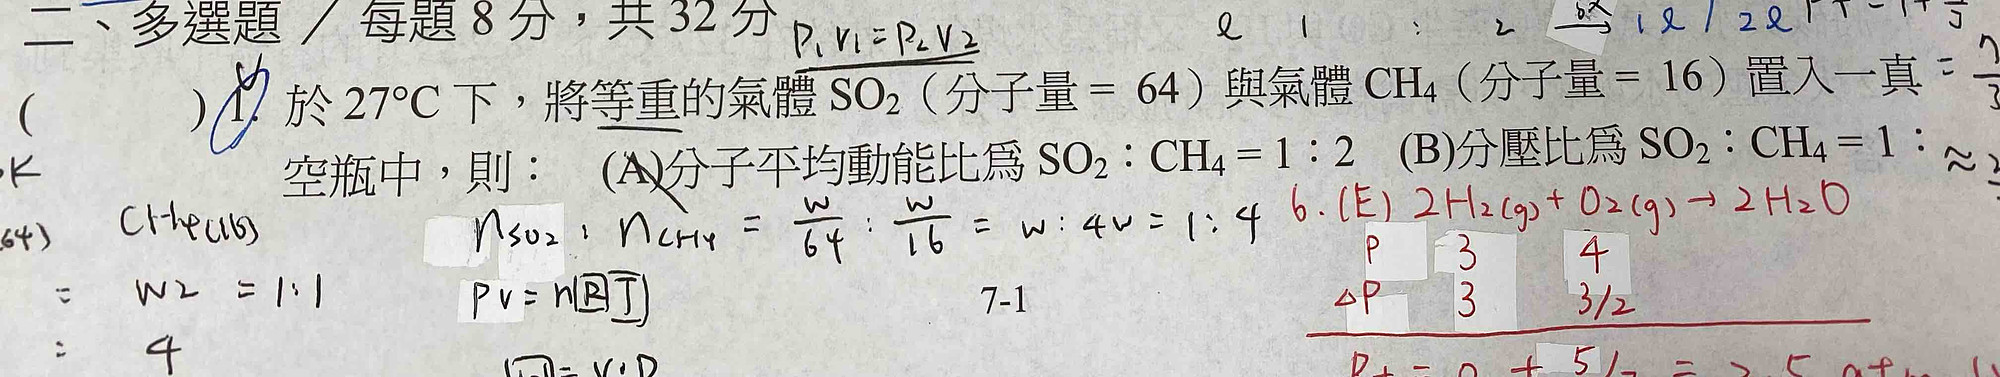 二、多選題／每題 8 分，共 32 分 P₁V₁=P₂V₂
l 1 : 2 1l / 2l
( ) 1. 於 27°C 下，將等重的氣體 SO₂（分子量 = 64）與氣體 CH₄（分子量 = 16）置入一真
空瓶中，則： (A)分子平均動能比為 SO₂：CH₄ = 1：2 (B)分壓比為 SO₂：CH₄ = 1：
K
64) CH₄(16)
: W2 = 1:1
: 4
nSO₂ : nCH₄ = w/64 : w/16 = w : 4w = 1 : 4
PV = nRT
7-1
6. (E) 2H₂(g) + O₂(g) → 2H₂O
P 3 4
△P 3 3/2